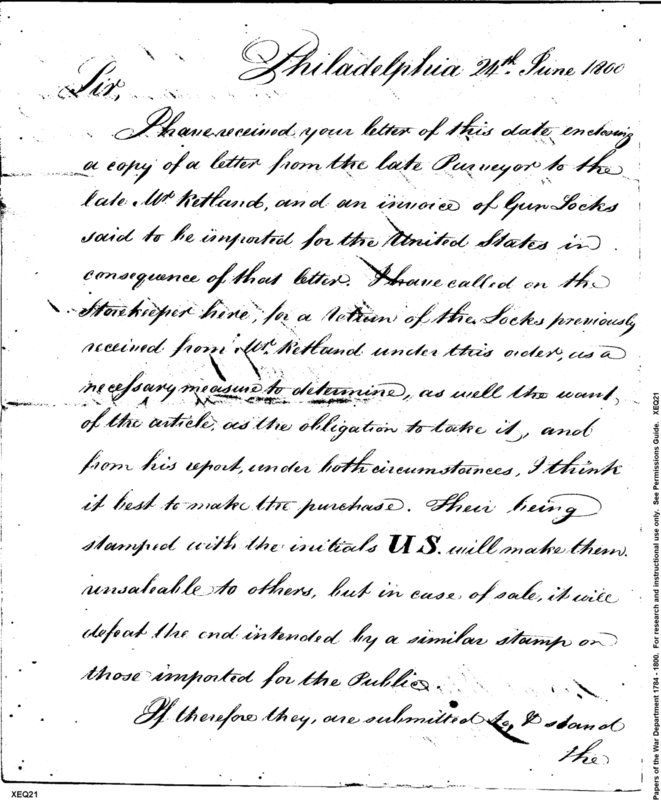 Philadelphia 24th. June 1800
Sir,
I have received your letter of this date enclosing
a copy of a letter from the late Purveyor to the
late Mr Ketland, and an invoice of Gun Locks
said to be imported for the United States in
consequence of that letter. I have called on the
Storekeeper here, for a return of the Locks previously
received from Mr. Ketland under this order, as a
necessary measure to determine, as well the want
of the article, as the obligation to take it, and
from his report, under both circumstances, I think
it best to make the purchase. Their being
stamped with the initials US. will make them
unsaleable to others, but in case of sale, it will
defeat the end intended by a similar stamp on
those imported for the Public.
If therefore they, are submitted to, & stand
the
XEQ21
Papers of the War Department 1784 - 1800. For research and instructional use only. See Permissions Guide. XEQ21